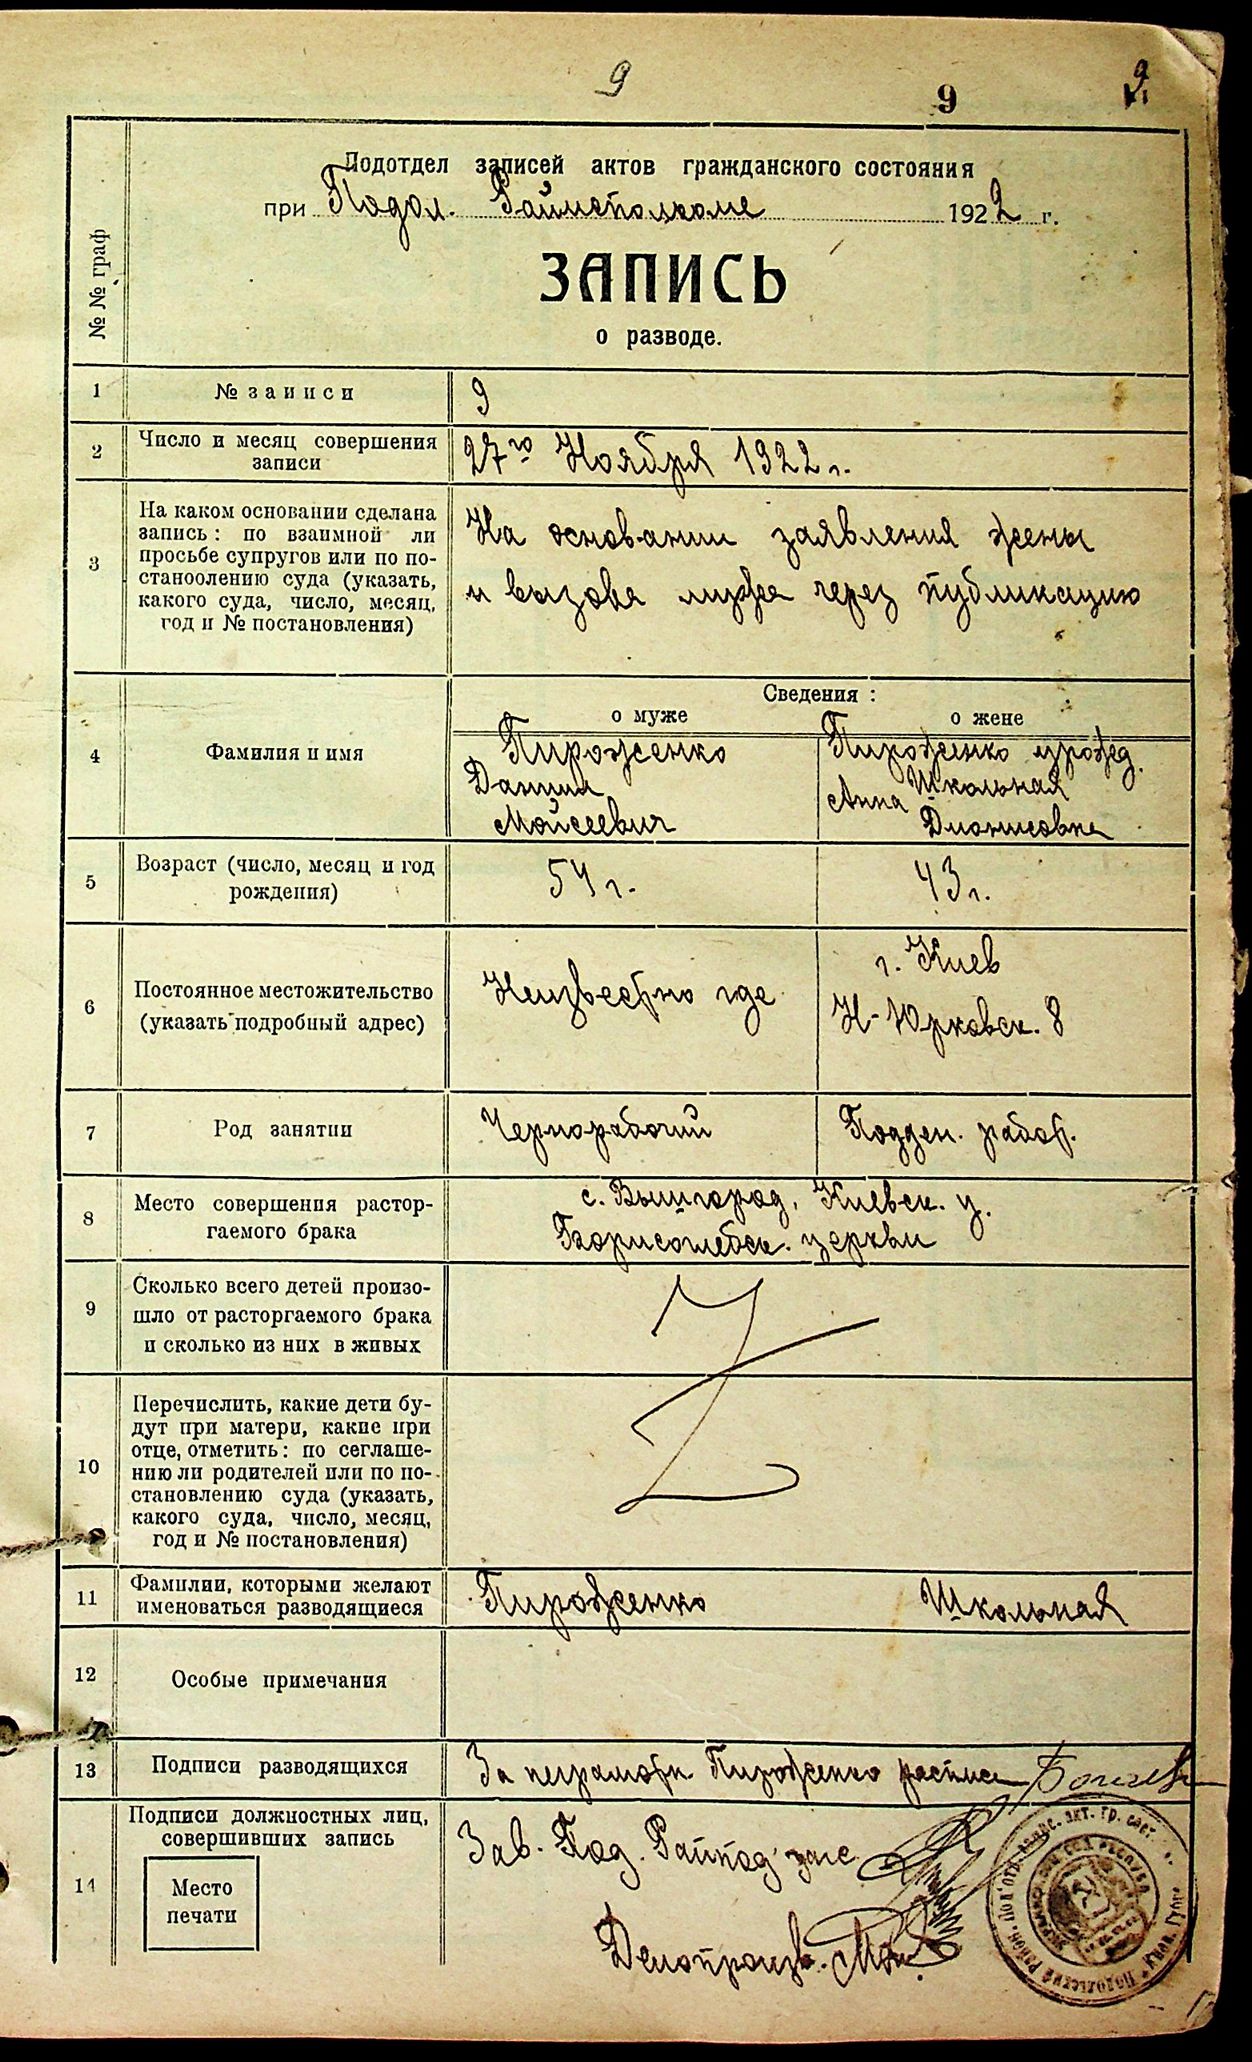 9
9
9
Подотдел записей актов гражданского состояния
при Подол. Райисполкоме 1922 г.
ЗАПИСЬ
о разводе.
№ № граф
1 № записи 9
2 Число и месяц совершения
записи
27го Ноября 1922 г.
3 На каком основании сделана
запись: по взаимной ли
просьбе супругов или по по-
станоолению суда (указать,
какого суда, число, месяц,
год и № постановления)
На основании заявления жены
и вызова мужа через публикацию
Сведения:
о муже о жене
4 Фамилия и имя
Пироженко
Даниил
Мойсеевич
Пироженко урожд.
Школьная
Анна
Дионисовна
5 Возраст (число, месяц и год
рождения)
54 г. 43 г.
6 Постоянное местожительство
(указать подробный адрес)
Неизвестно где
г. Киев
Н-Юрковск. 8
7 Род занятии Чернорабочий Подден. работ.
8 Место совершения растор-
гаемого брака
с. Вышгород, Киевск. у.
Борисоглебск. церкви
9 Сколько всего детей произо-
шло от расторгаемого брака
и сколько из них в живых
10 Перечислить, какие дети бу-
дут при матери, какие при
отце, отметить: по сеглаше-
нию ли родителей или по по-
становлению суда (указать,
какого суда, число, месяц,
год и № постановления)
11 Фамилии, которыми желают
именоваться разводящиеся
Пироженко Школьная
12 Особые примечания
13 Подписи разводящихся За неграмотн Пироженко расписа
14 Подписи должностных лиц,
совершивших запись
Место
печати
Зав. Под. Райпод загс
Делопроизв.